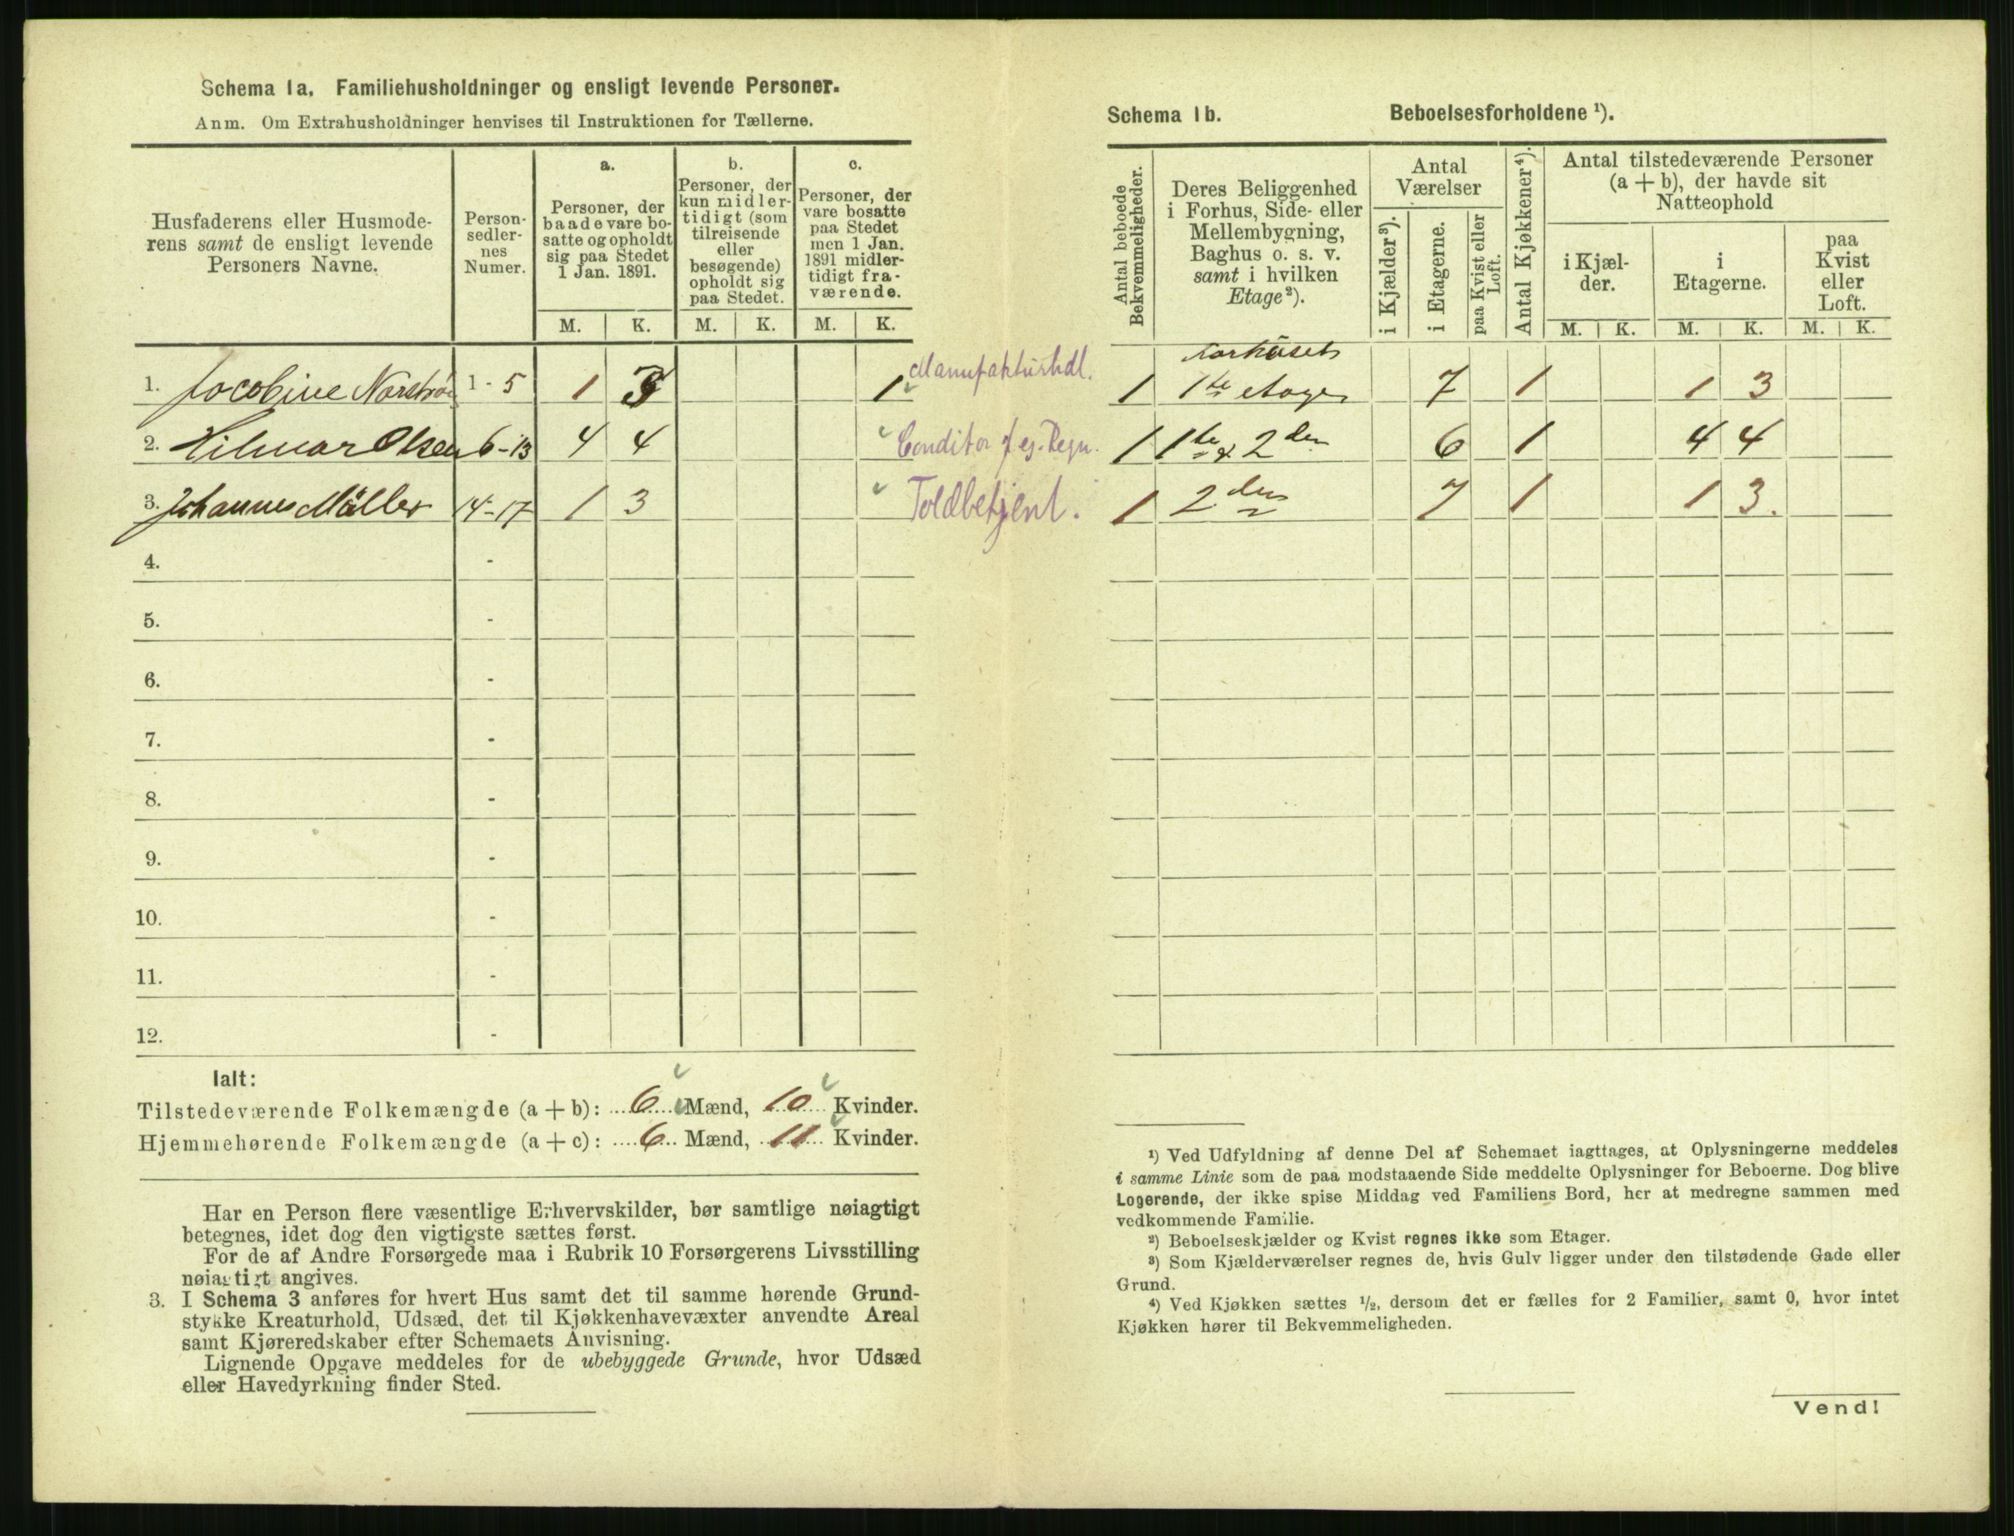 Schema 1a. Familiehusholdninger og ensligt levende Personer.
Anm. Om Extrahusholdninger henvises til Instruktionen for Tællerne.
Husfaderens eller Husmode-
rens samt de ensligt levende
Personers Navne.
Person-
sedler-
nes
Numer.
a.
Personer, der
baade vare bo-
satte og opholdt
sig paa Stedet
1 Jan. 1891.
b.
Personer, der
kun midler-
tidigt (som
tilreisende
eller
besøgende)
opholdt sig
paa Stedet.
c.
Personer, der
vare bosatte
paa Stedet
men 1 Jan.
1891 midler-
tidigt fra-
værende.
M. K. M. K. M. K.
1. Jocobine Norstrøm 1 - 5 1 3 1 Manufakturhdl.
2. Hilmar Olsen 6 - 13 4 4 Conditor f eg. Regn.
3. Johannes Müller 14 - 17 1 3 Toldbetjent.
4. -
5. -
6. -
7. -
8. -
9. -
10. -
11. -
12. -
Ialt:
Tilstedeværende Folkemængde (a + b): 6 Mænd, 10 Kvinder.
Hjemmehørende Folkemængde (a + c): 6 Mænd, 11 Kvinder.
Har en Person flere væsentlige Erhvervskilder, bør samtlige nøiagtigt
betegnes, idet dog den vigtigste sættes først.
For de af Andre Forsørgede maa i Rubrik 10 Forsørgerens Livsstilling
nøiagtigt angives.
3. I Schema 3 anføres for hvert Hus samt det til samme hørende Grund-
stykke Kreaturhold, Udsæd, det til Kjøkkenhavevæxter anvendte Areal
samt Kjøreredskaber efter Schemaets Anvisning.
Lignende Opgave meddeles for de ubebyggede Grunde, hvor Udsæd
eller Havedyrkning finder Sted.
Schema 1b. Beboelsesforholdene ¹).
Antal beboede
Bekvemmeligheder.
Deres Beliggenhed
i Forhus, Side- eller
Mellembygning,
Baghus o. s. v.
samt i hvilken
Etage²).
Antal
Værelser
i Kjælder³).
i Etagerne.
paa Kvist eller
Loft.
Antal Kjøkkener⁴).
Antal tilstedeværende Personer
(a + b), der havde sit
Natteophold
i Kjæl-
der.
i
Etagerne.
paa
Kvist
eller
Loft.
M. K. M. K. M. K.
Forhuset
1 1te etage 7 1 1 3
1 1te & 2den 6 1 4 4
1 2den 7 1 1 3.
¹) Ved Udfyldning af denne Del af Schemaet iagttages, at Oplysningerne meddeles
i samme Linie som de paa modstaaende Side meddelte Oplysninger for Beboerne. Dog blive
Logerende, der ikke spise Middag ved Familiens Bord, her at medregne sammen med
vedkommende Familie.
²) Beboelseskjælder og Kvist regnes ikke som Etager.
³) Som Kjælderværelser regnes de, hvis Gulv ligger under den tilstødende Gade eller
Grund.
⁴) Ved Kjøkken sættes ½, dersom det er fælles for 2 Familier, samt 0, hvor intet
Kjøkken hører til Bekvemmeligheden.
Vend!